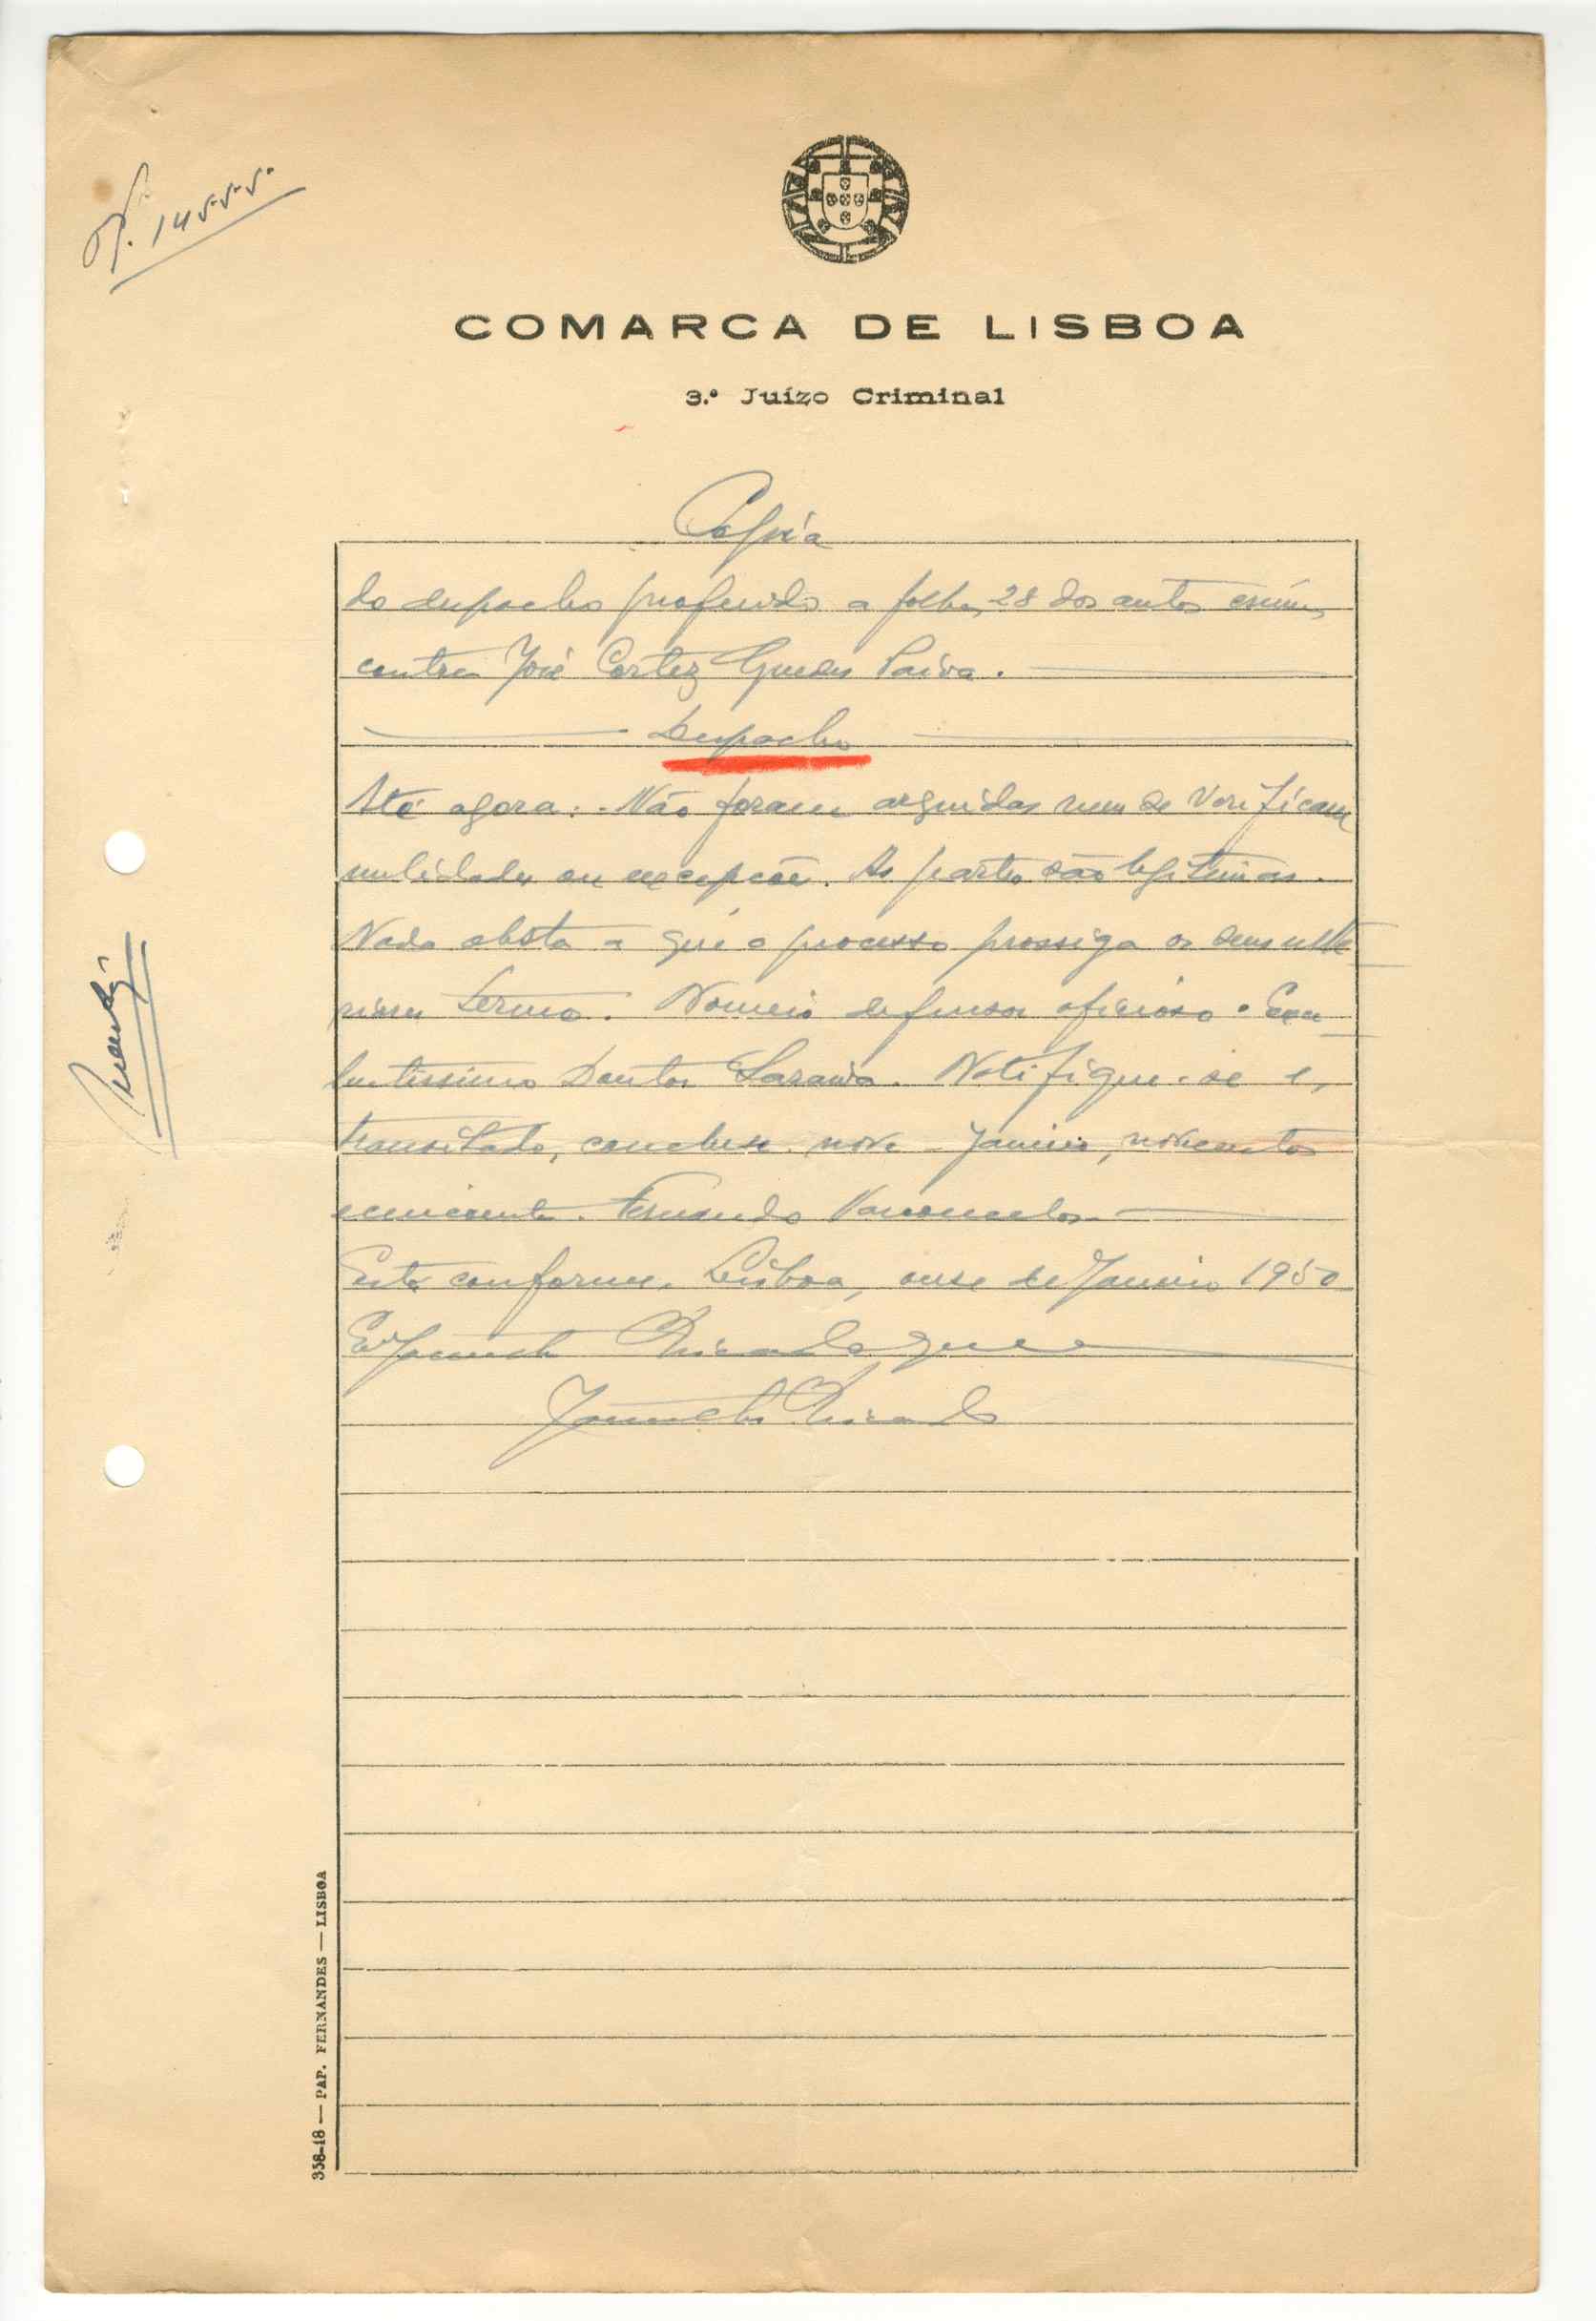 N. 14555
COMARCA DE LISBOA
3.º Juízo Criminal
Copia
do despacho proferido a folhas 28 dos autos crimes
contra José Cortez Guedes Paiva.
Despacho
Até agora: - Não foram arguidas nem se verificam
nulidades ou excepções. As partes são legitimas.
Nada obsta a que o processo prossiga os seus ulte
riores termos. Nomeio defensor oficioso o Exce
lentissimo Doutor Saraiva. Notifique-se e,
transitado, conclusos. nove - Janeiro, novecentos
e cincoenta. Fernando Vasconcelos
Está conforme. Lisboa, onze de Janeiro 1950
358-18 — PAP. FERNANDES — LISBOA